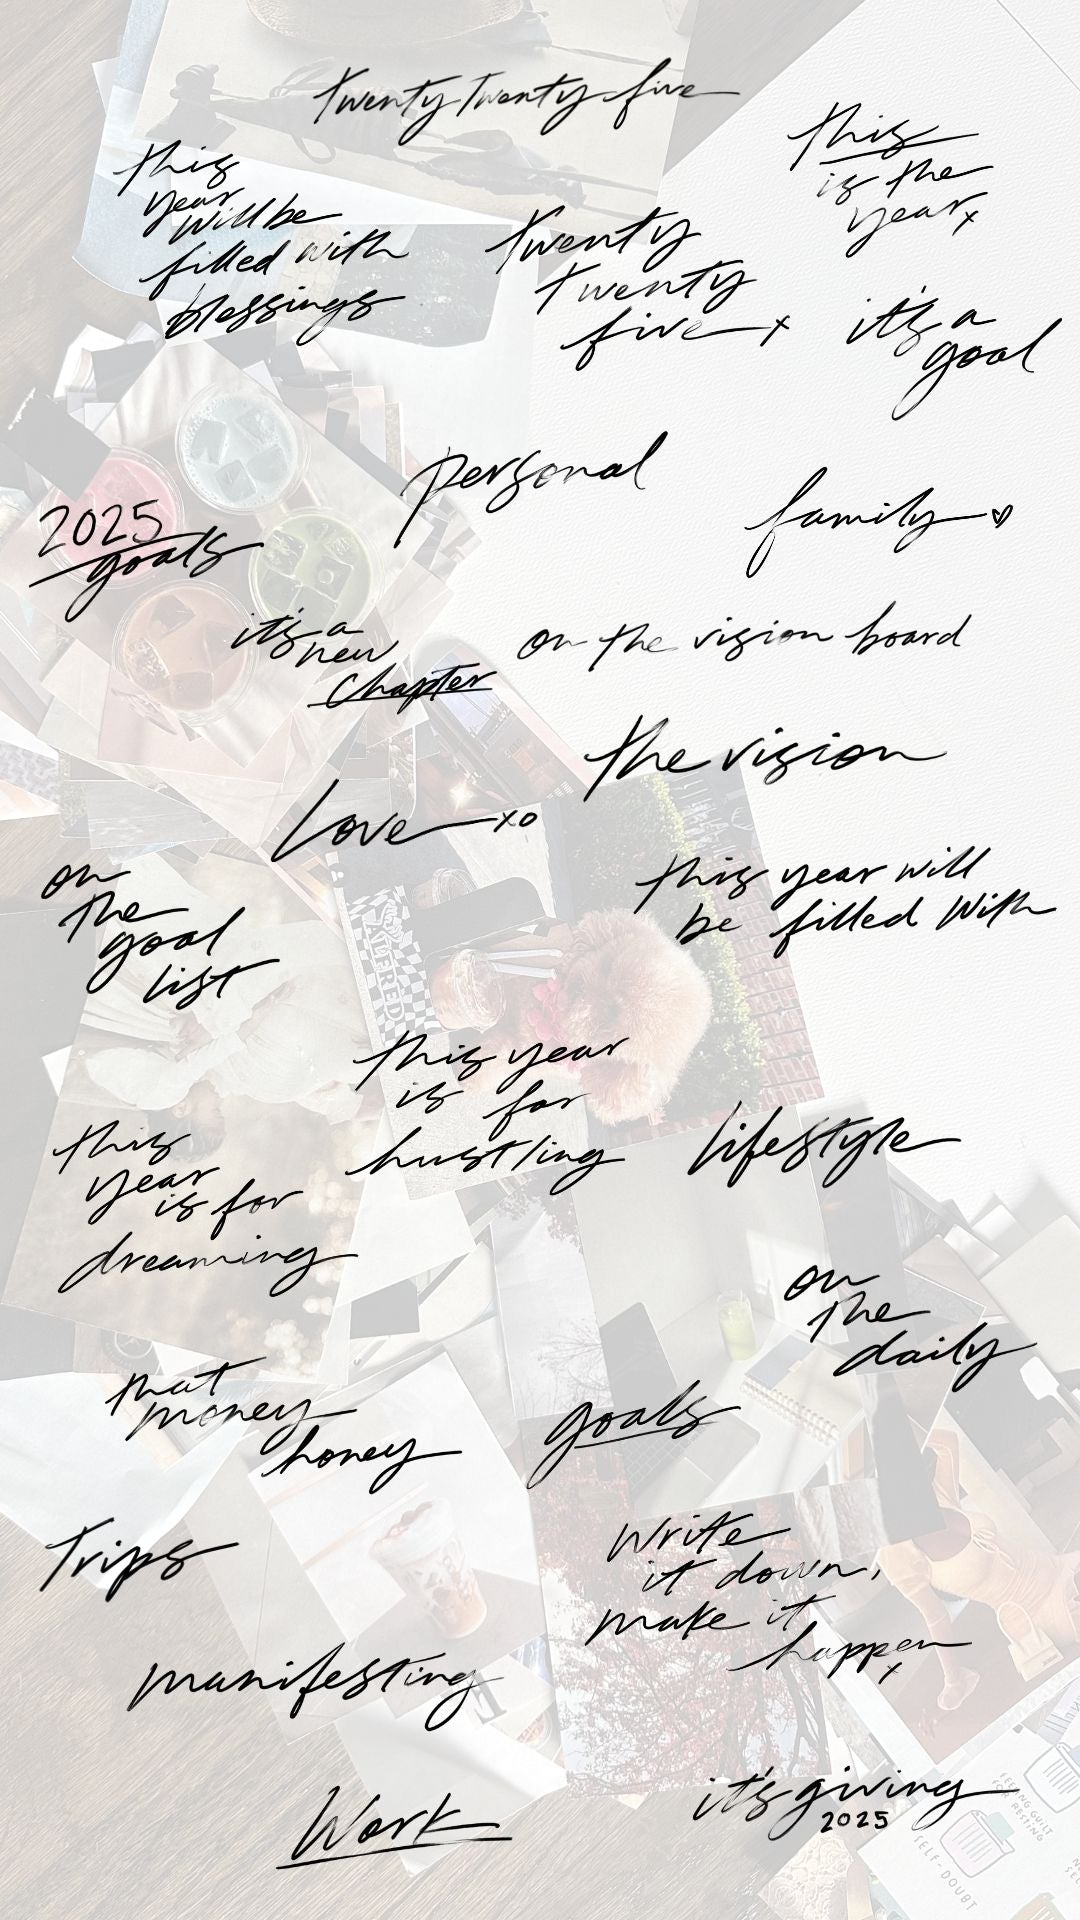 twenty twenty five
this
is the
year x
this
year
will be
filled with
blessings
twenty
twenty
five x
it's a
goal
personal
family
2025
goals
it's a
new
chapter
on the vision board
the vision
Love xo
on
the
goal
list
this year will
be filled with
ALFRED
this year
is for
hustling
this
year
is for
dreaming
lifestyle
on
the
daily
that
money
honey
goals
Trips
Write
it down,
make it
happen
x
manifesting
Work
it's giving
2025
SELF-DOUBT